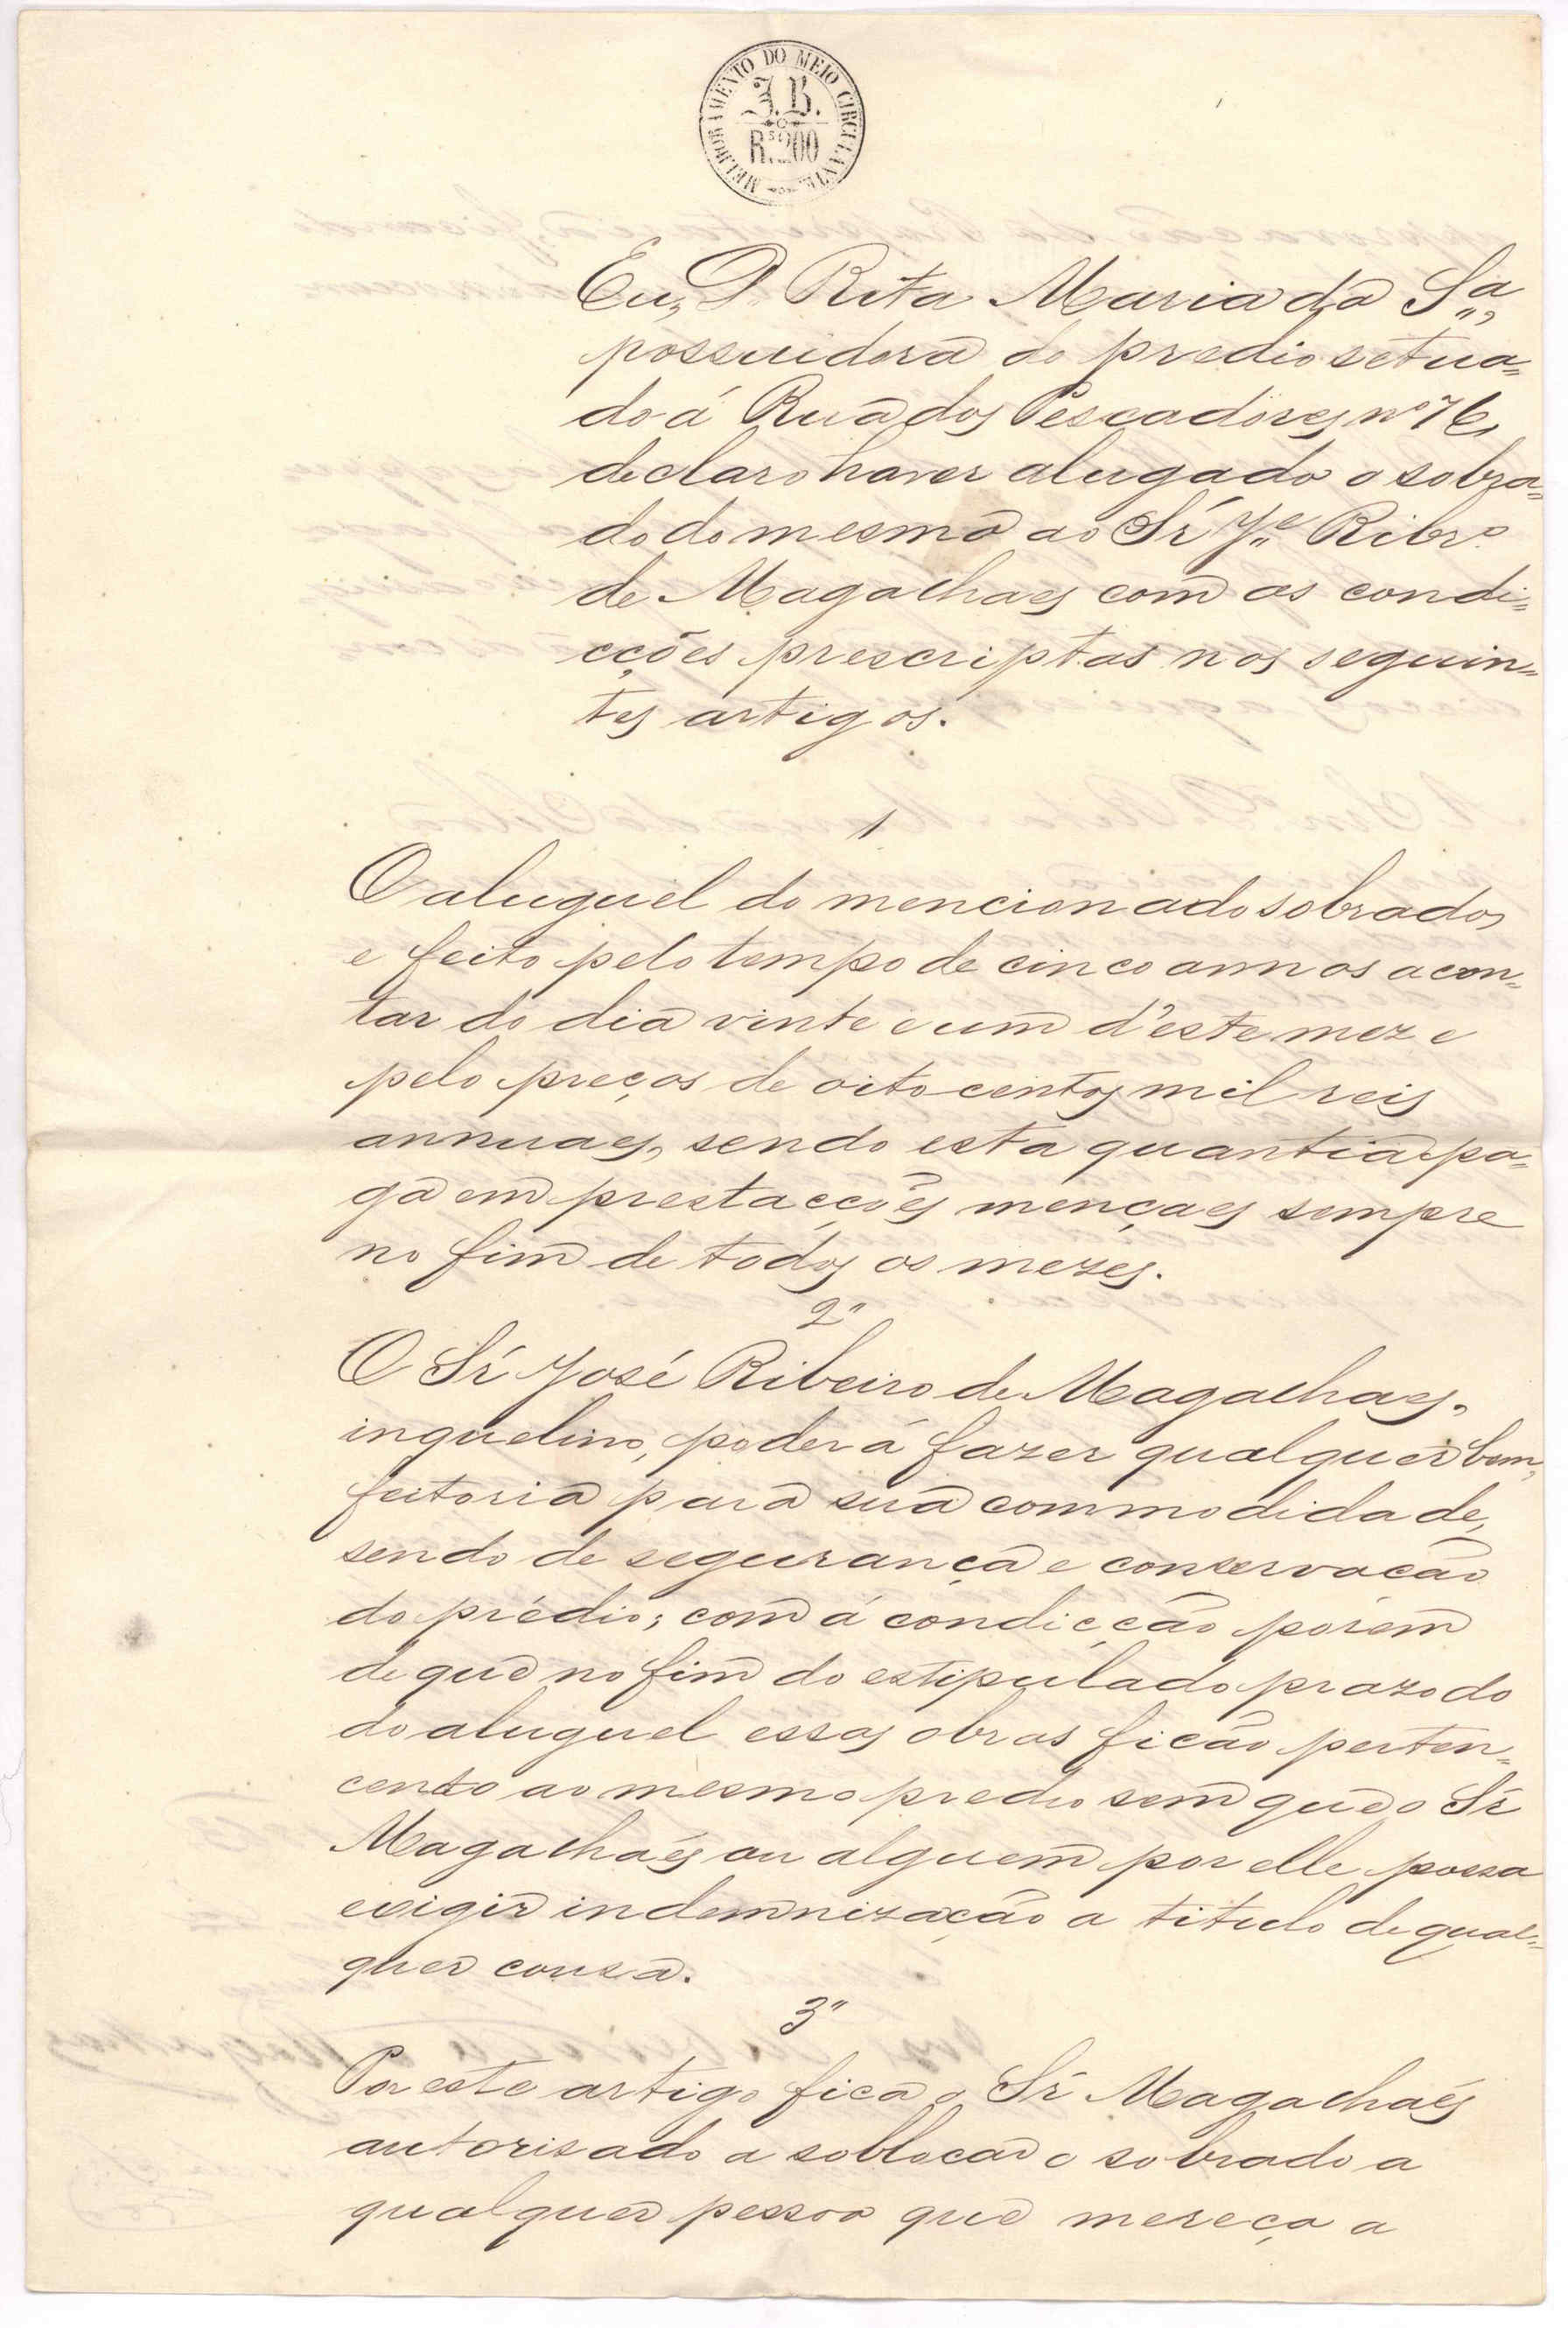 MELHORAMENTO DO MEIO CIRCULANTE
I. B.
Rs. 200
Eu, D. Rita Maria da Sa,
possuidora do predio setua=
do á Rua dos Pescadores nº 76,
declaro haver alugado o sobra=
do do mesmo ao Sr Je Ribro
de Magalhaes com as condi=
cções prescriptas nos seguin=
tes artigos.
1
O aluguel do mencionado sobrado,
e feito pelo tempo de cinco annos a con=
tar do dia vinte e um d'este mez e
pelo preços de oito centos mil reis
annuaes, sendo esta quantia pa=
ga em prestacções mençaes sempre
no fim de todos os mezes.
2"
O Sr José Ribeiro de Magalhaes,
inquelino, poderá fazer qualquer bem=
feitoria para sua commodidade,
sendo de segurança e conservacão
do prédio; com á condicção porem
de que no fim do estipulado prazo do
do aluguel essas obras ficão perten=
cento ao mesmo predio sem que o Sr
Magalhaés ou alguem por elle possa
exigir indemnização a titulo de qual=
quer cousa.
3"
Por este artigo fica o Sr Magalhaés
autorisado a soblocar o sobrado a
qualquer pessoa que mereça a